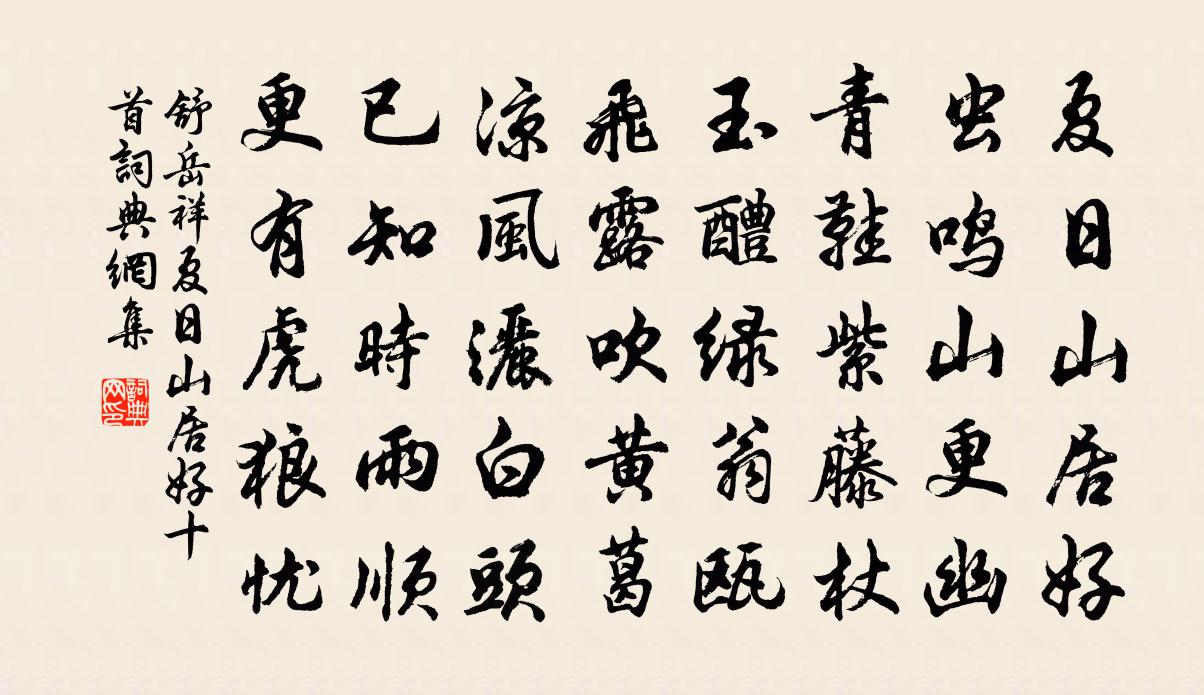 夏日山居好
虫鸣山更幽
青鞋紫藤杖
玉醴绿翁瓯
飛露吹黄葛
凉風灑白頭
已知時雨顺
更有虎狼忧
舒岳祥夏日山居好十
首詞典網集
詞典
网印